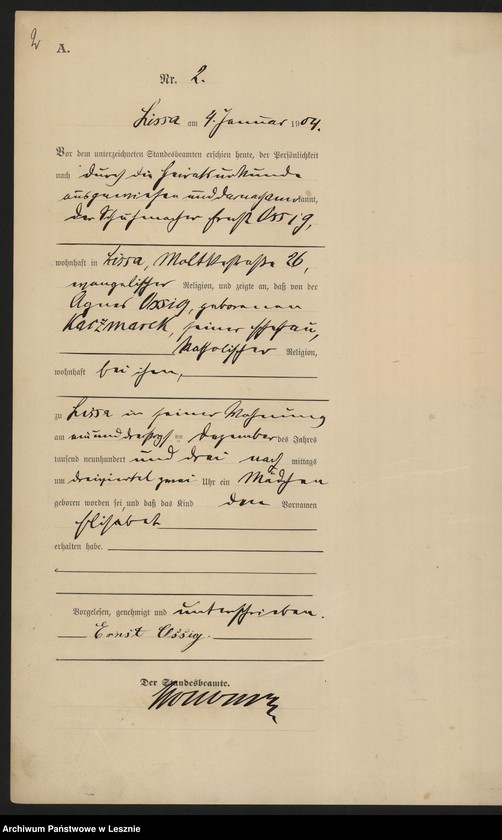 2
A.
Nr. 2.
Lissa am 4. Januar 1904.
Vor dem unterzeichneten Standesbeamten erschien heute, der Persönlichkeit
nach durch die Heiratsurkunde
ausgewiesen und darnach anerkannt,
der Schuhmacher Ernst Ossig,
wohnhaft in Lissa, Moltkestraße 26,
evangelischer Religion, und zeigte an, daß von der
Agnes Ossig, geborenen
Kaczmarek, seiner Ehefrau,
katholischer Religion,
wohnhaft bei ihm,
zu Lissa in seiner Wohnung
am einunddreißigsten Dezember des Jahres
tausend neunhundert und drei nach mittags
um dreiviertel zwei Uhr ein Mädchen
geboren worden sei, und daß das Kind den Vornamen
Elisabet
erhalten habe.
Vorgelesen, genehmigt und unterschrieben.
Ernst Ossig
Der Standesbeamte.
Archiwum Państwowe w Lesznie